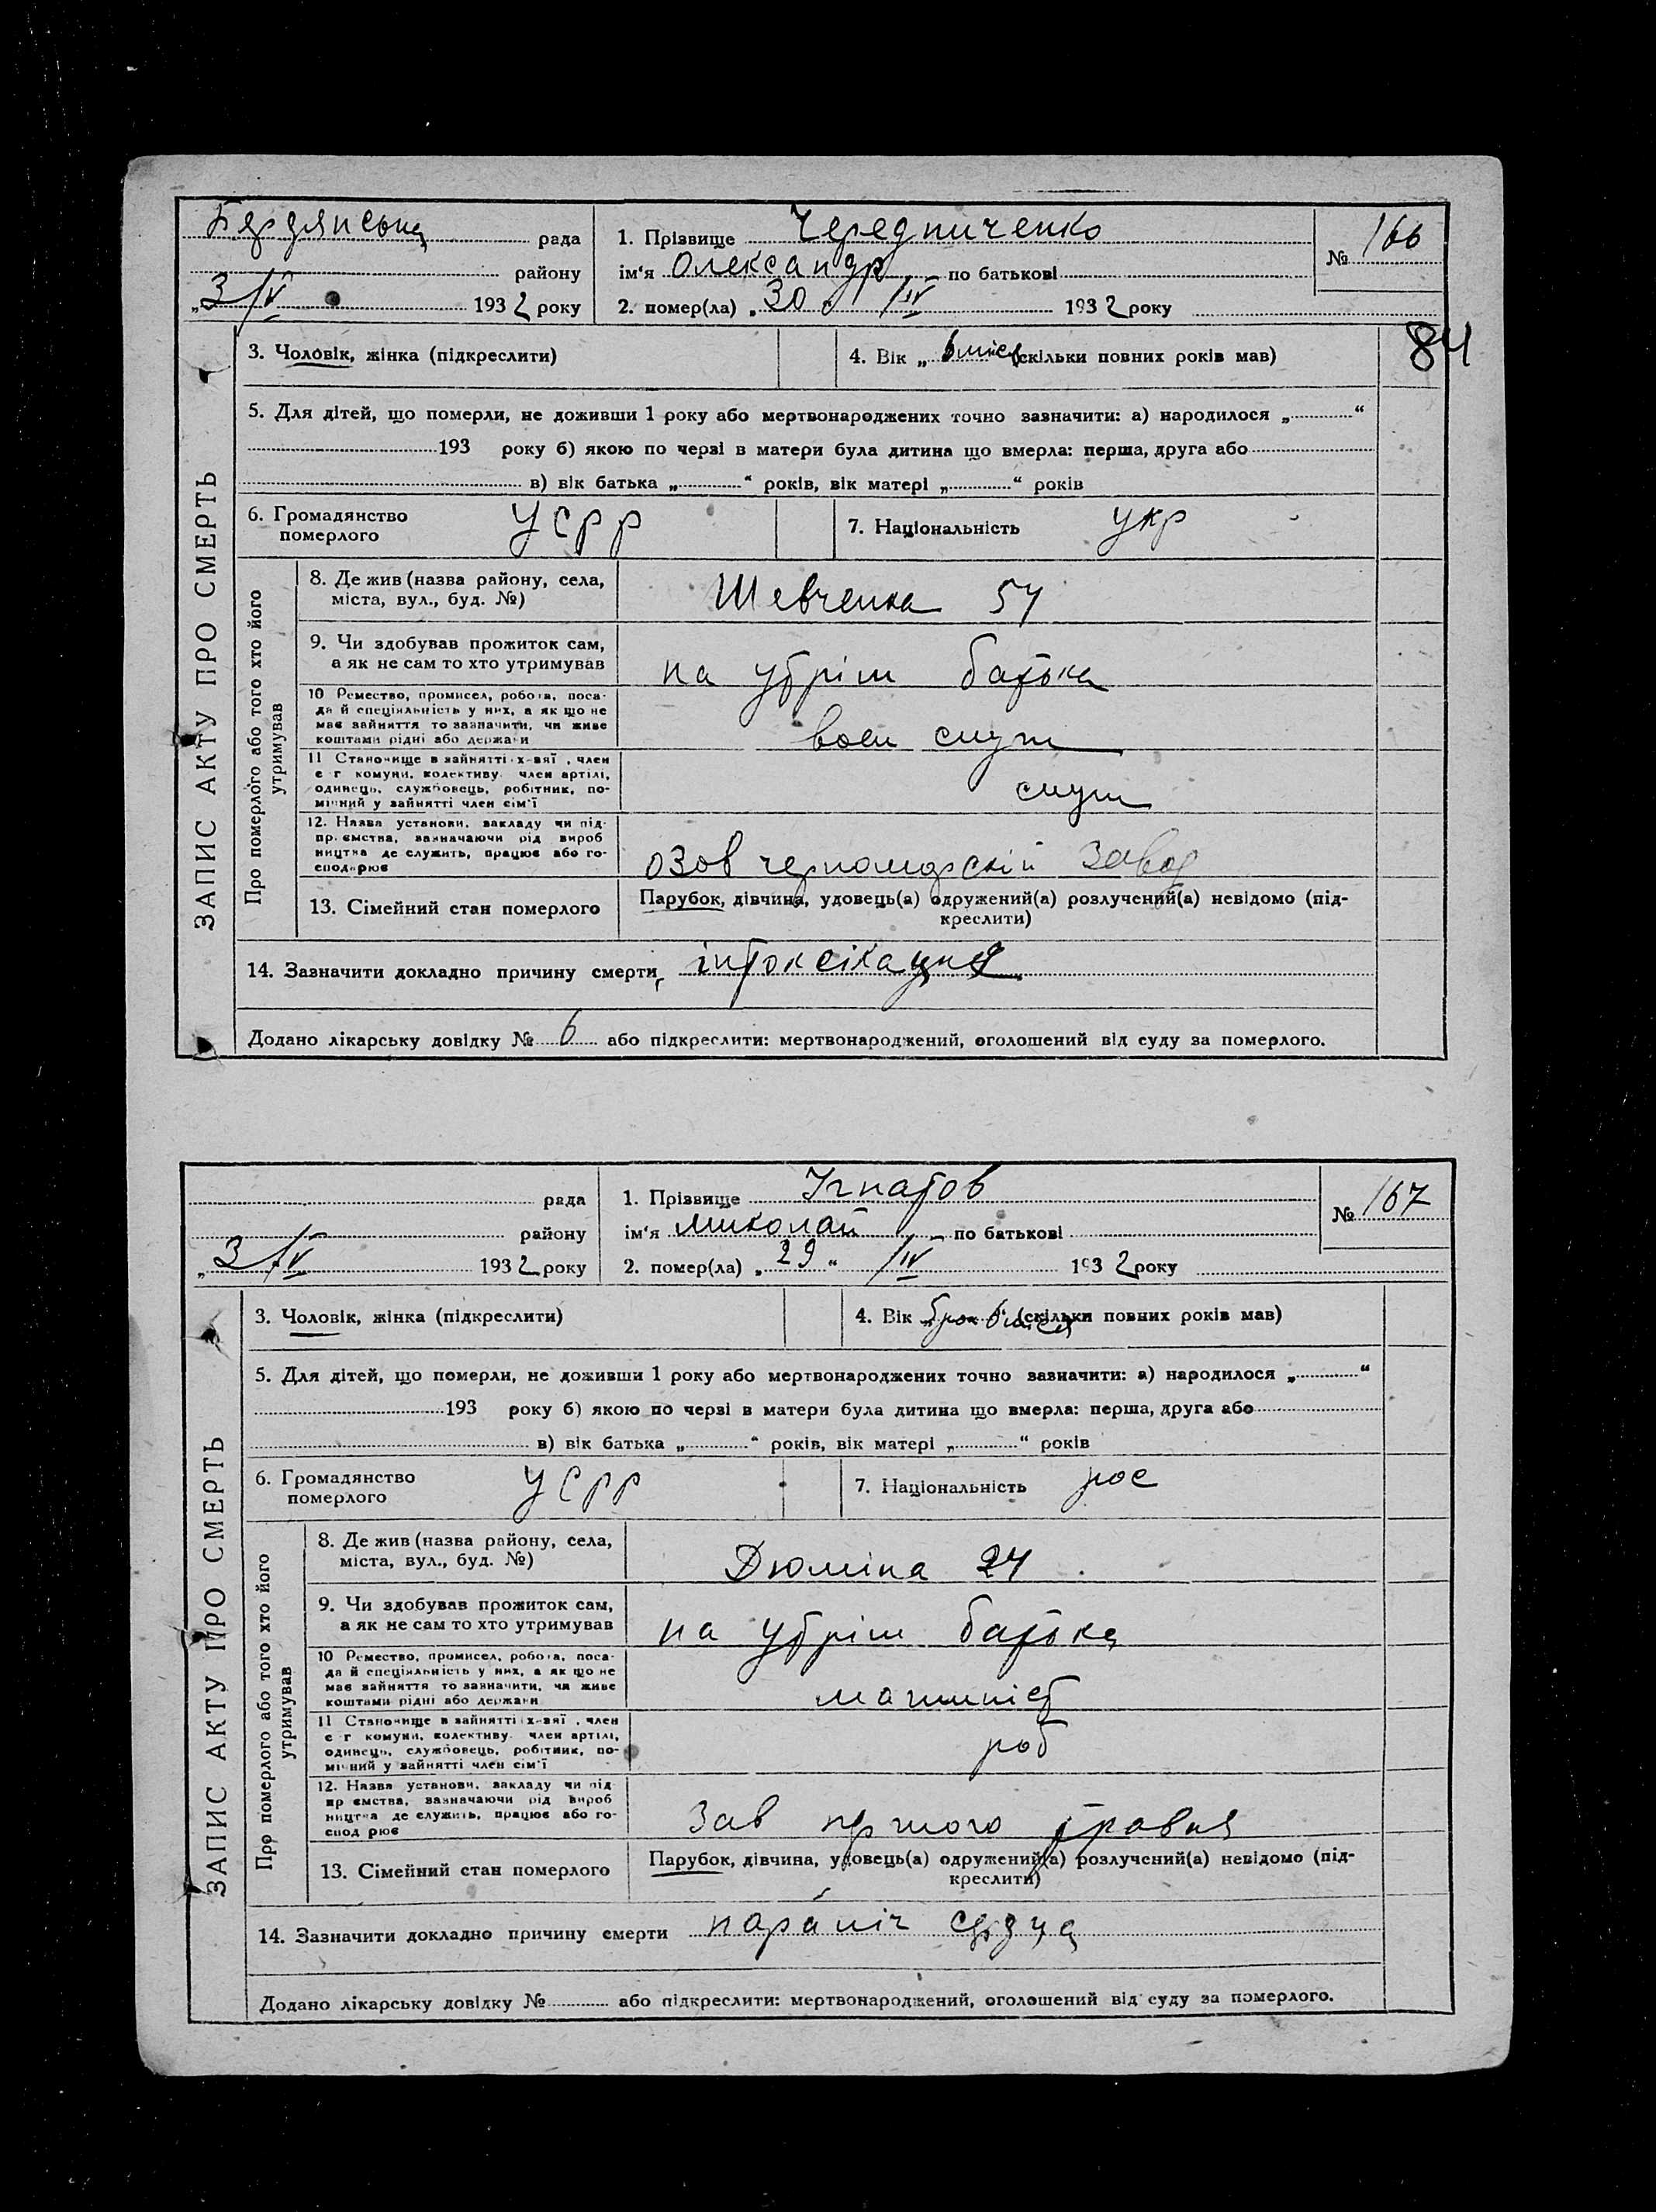 Бердянська рада
району
„3/V 1932 року
1. Прізвище Чередниченко
ім'я Олександр по батькові
2. помер(ла) „30 /IV 1932 року
№ 166
84
3. Чоловік, жінка (підкреслити)
4. Вік „6 міся (скільки повних років мав)
5. Для дітей, що померли, не доживши 1 року або мертвонароджених точно зазначити: а) народилося „ “
193 року б) якою по черзі в матери була дитина що вмерла: перша, друга або
в) вік батька „ “ років, вік матері „ “ років
6. Громадянство померлого УСРР
7. Національність укр
ЗАПИС АКТУ ПРО СМЕРТЬ
Про померлого або того хто його утримував
8. Де жив (назва району, села,
міста, вул., буд. №)
Шевченка 54
9. Чи здобував прожиток сам,
а як не сам то хто утримував
на утрім батька
10 Ремество, промисел, робота, поса-
да й спеціяльність у них, а як що не
має зайняття то зазначити, чи живе
коштами рідні або держави
служ
11 Становище в зайнятті х-вяї, член
с г комуни, колективу член артілі,
одинець, службовець, робітник, по-
мічний у зайнятті член сім'ї
служ
12. Назва установи, закладу чи під-
приємства, зазначаючи рід вироб
ництва де служить, працює або го-
сподарює
Озов черноморскій Завод
13. Сімейний стан померлого
Парубок, дівчина, удовець(а) одружений(а) розлучений(а) невідомо (під-
креслити)
14. Зазначити докладно причину смерти інтоксікация
Додано лікарську довідку № 6 або підкреслити: мертвонароджений, оголошений від суду за померлого.
рада
району
„3/V 1932 року
1. Прізвище Ігнатов
ім'я Миколай по батькові
2. помер(ла) „29 “ /IV 1932 року
№ 167
3. Чоловік, жінка (підкреслити)
4. Вік „ 6 міся (скільки повних років мав)
5. Для дітей, що померли, не доживши 1 року або мертвонароджених точно зазначити: а) народилося „ “
193 року б) якою по черзі в матери була дитина що вмерла: перша, друга або
в) вік батька „ “ років, вік матері „ “ років
6. Громадянство померлого УСРР
7. Національність рос
ЗАПИС АКТУ ПРО СМЕРТЬ
Про померлого або того хто його утримував
8. Де жив (назва району, села,
міста, вул., буд. №)
Дюміна 24
9. Чи здобував прожиток сам,
а як не сам то хто утримував
на утрім батька
10 Ремество, промисел, робота, поса-
да й спеціяльність у них, а як що не
має зайняття то зазначити, чи живе
коштами рідні або держави
машиніст
11 Становище в зайнятті х-вяї, член
с г комуни, колективу член артілі,
одинець, службовець, робітник, по-
мічний у зайнятті член сім'ї
роб
12. Назва установи, закладу чи під
приємства, зазначаючи рід вироб
ництва де служить, працює або го-
сподарює
Зав першого травня
13. Сімейний стан померлого
Парубок, дівчина, удовець(а) одружений(а) розлучений(а) невідомо (під-
креслити)
14. Зазначити докладно причину смерти параліч серзца
Додано лікарську довідку № або підкреслити: мертвонароджений, оголошений від суду за померлого.